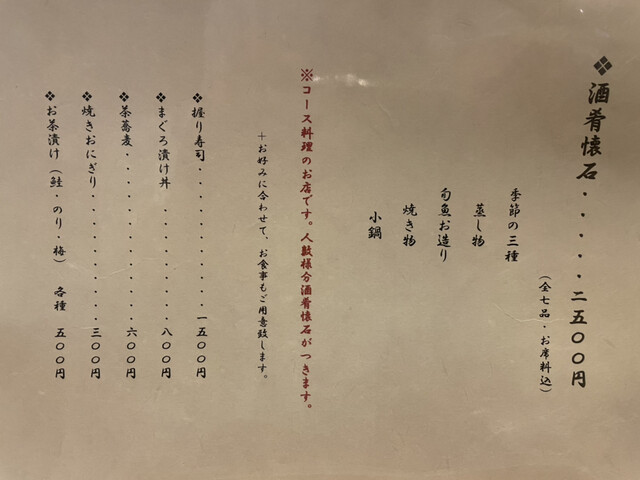 ❖酒肴懐石・・・・・二五〇〇円
(全七品・お席料込)
季節の三種
蒸し物
旬魚お造り
焼き物
小鍋
※コース料理のお店です。人数様分酒肴懐石がつきます。
＋お好みに合わせて、お食事もご用意致します。
❖握り寿司・・・・・・・・・・・一五〇〇円
❖まぐろ漬け丼・・・・・・・・・八〇〇円
❖茶蕎麦・・・・・・・・・・・・六〇〇円
❖焼きおにぎり・・・・・・・・・三〇〇円
❖お茶漬け(鮭・のり・梅) 各種 五〇〇円